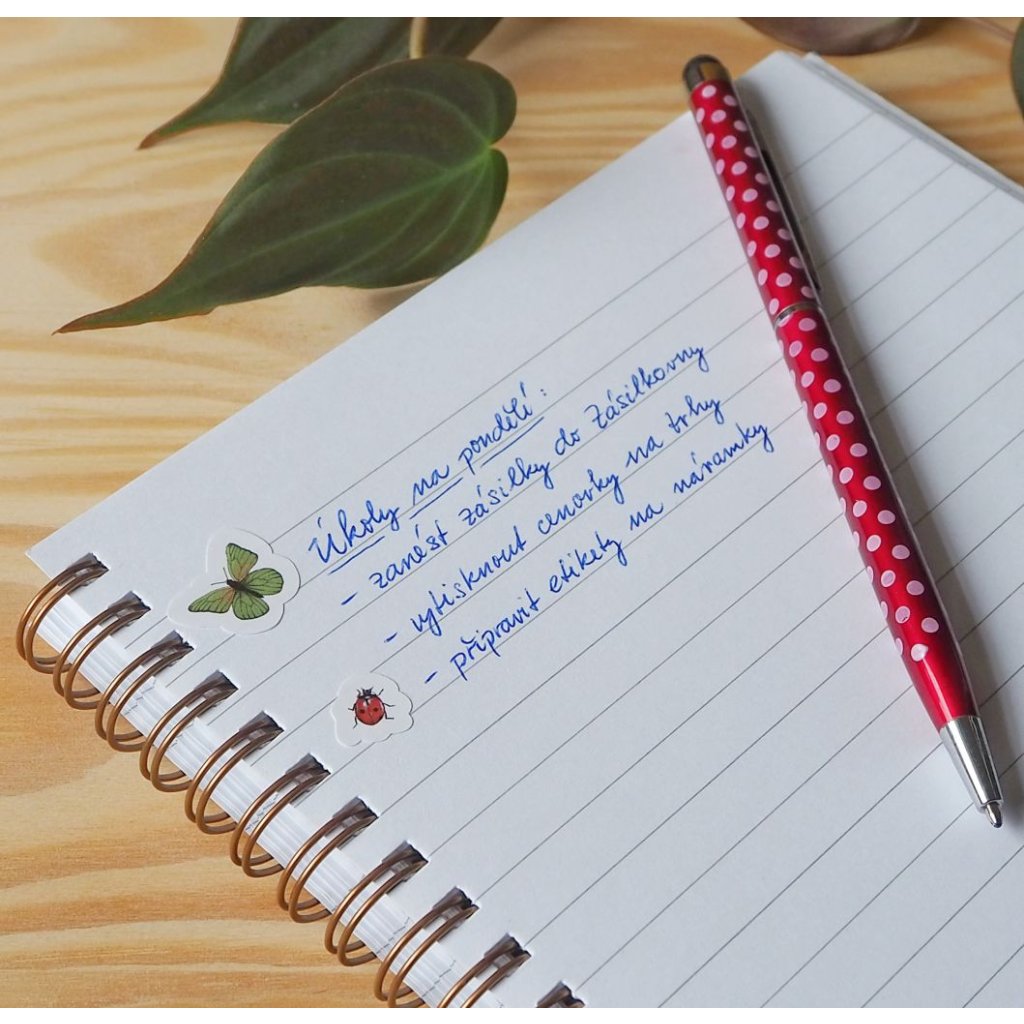 Úkoly na pondělí:
- zanést zásilky do Zásilkovny
- vytisknout cenovky na trhy
- připravit etikety na náramky